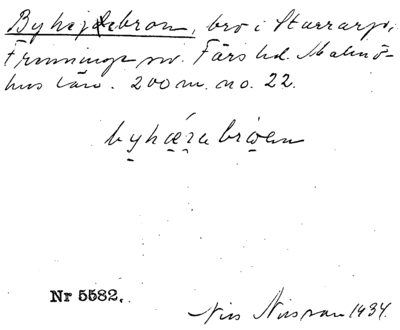 Byhejdebron, bro i Starrarp,
Frenninge sn. Färs hd. Malmö-
hus län. 200 m. no. 22.
byhæzabrøen
Nr 5582.
Nils Nilsson 1934.